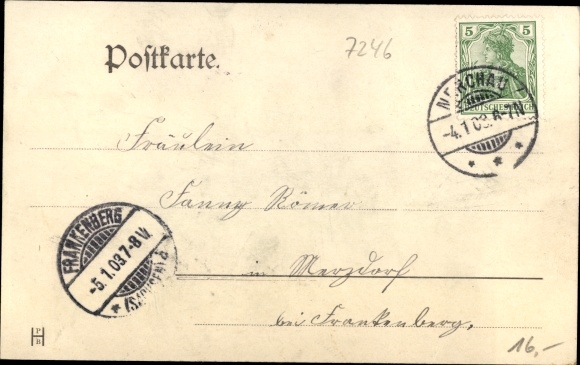 7246
Postkarte.
5
DEUTSCHES REICH
NERCHAU
-4.1.03.6-7N.
* * *
Fräulein
Fanny Römer
in Merzdorf
bei Frankenberg.
FRANKENBERG
-5.1.03.7-8V.
* (SACHSEN) a
P
H
B
16,-